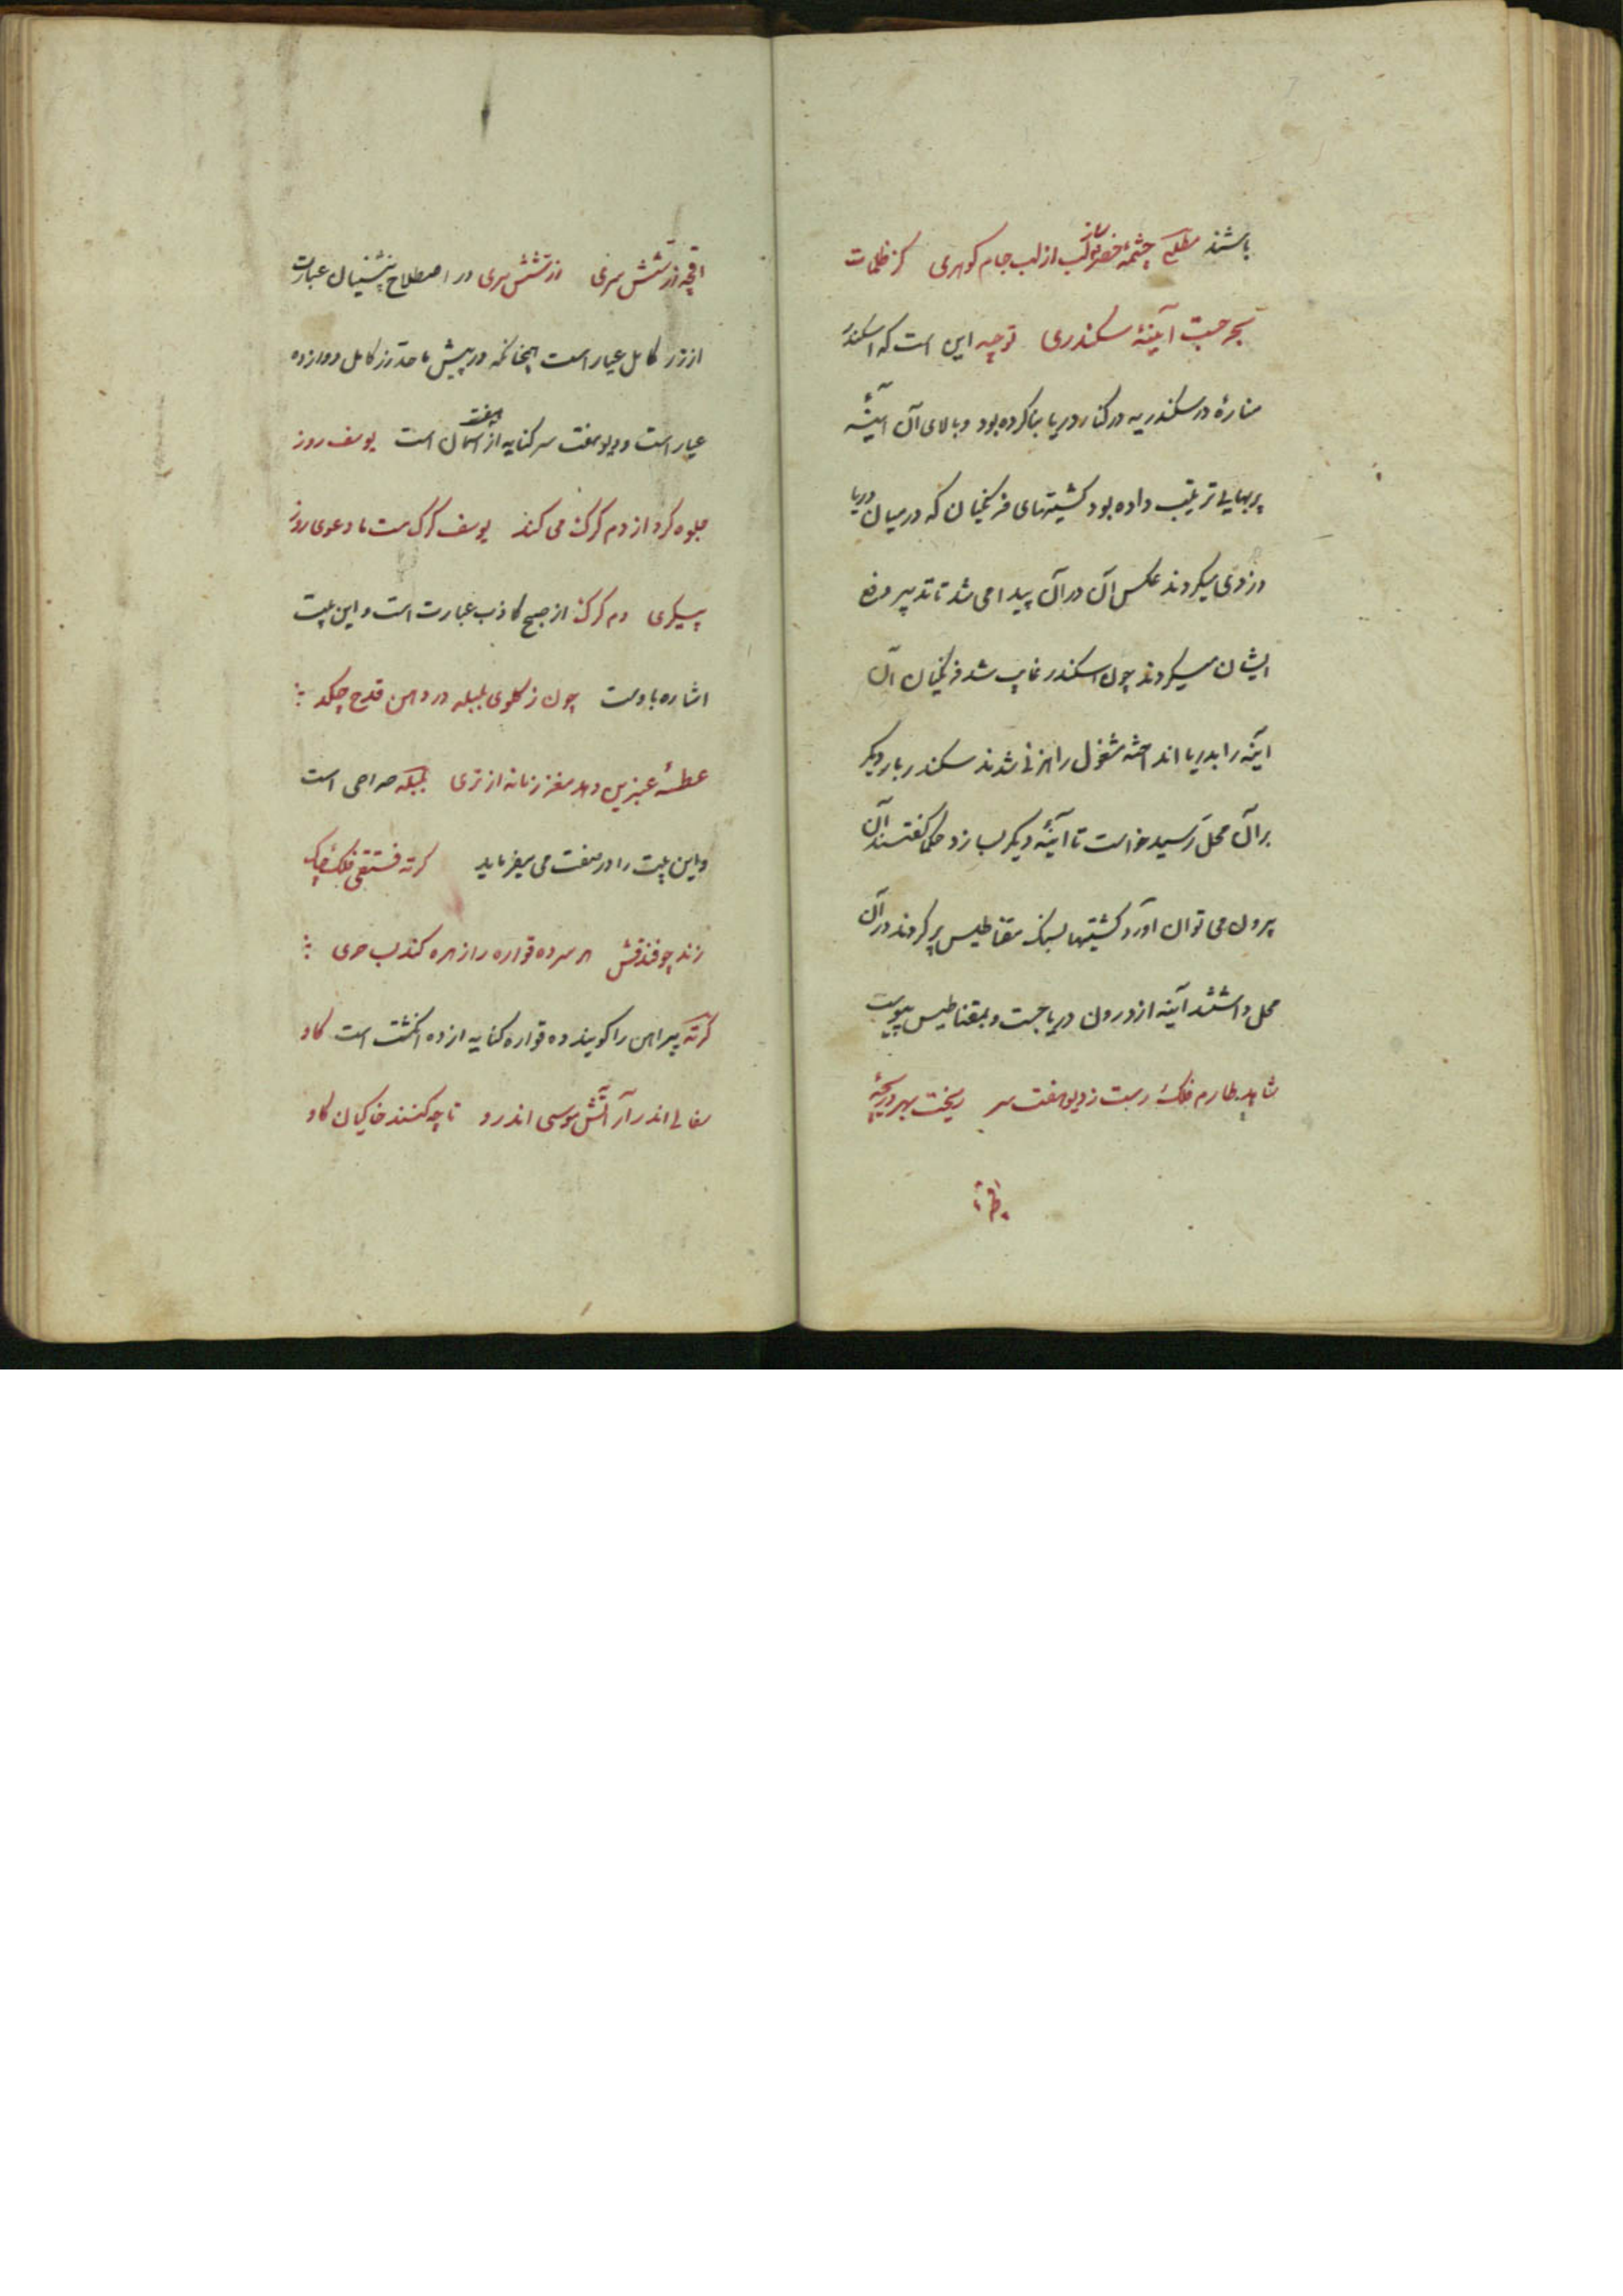 باشند مطلع چشمهٔ خضر ساز لب از لب جام کوهری کز ظلمات
بحر جست آینهٔ سکندری توجیه این است که اسکندر
مناره در سکندریه در کنار دریا بنا کرده بود و بالای آن آینه
پربهایی ترتیب داده بود کشتیهای فرنگیان که در میان دریا
دزدی میکردند عکس آن در آن پیدا می شد تا تدبیر دفع
ایشان میکردند چون اسکندر غایب شد فرنگیان آن
اینه را بدریا انداخته مشغول راهزنی شدند سکندر بار دیکر
بر آن محل رسید خواست تا آینهٔ دیکر بسازد حکما کفتند آن
بیرون می توان آورد کشتیها بسنک مقناطیس پر کردند در آن
محل داشتند آینه از درون دریا جست و بمقناطیس پیوست
شاهد طارم فلک رست ز دیو هفت سر ریخت بهر دریچهٔ
اقچه زر شش سری زر شش سری در اصطلاح پیشینیان عبارت
از زر کامل عیار است چنانکه در پیش ما حد زر کامل دوازده
عیار است و دیو هفت سر کنایه از هفت اسمان است یوسف روز
جلوه کرد از دم کرک می کند یوسف کرک مست ما دعوی روز
پیکری دم کرک از صبح کاذب عبارت است و این بیت
اشاره باوست چون ز کلوی بلبله در دهن قدح چکد
عطسهٔ عنبرین دهد مغز زمانه از تری بلبله صراحی است
و این بیت را در صفت می میفرماید کرته فستقی فلک چاک
زند چو فندقش هر سر ده قواره را زهره کند بساحری
کرته پیراهن را کویند و ده قواره کنایه از ده انکشت است کاو
سفالی اندر آر آتش موسی اندرو تا چه کنند خاکیان کاو